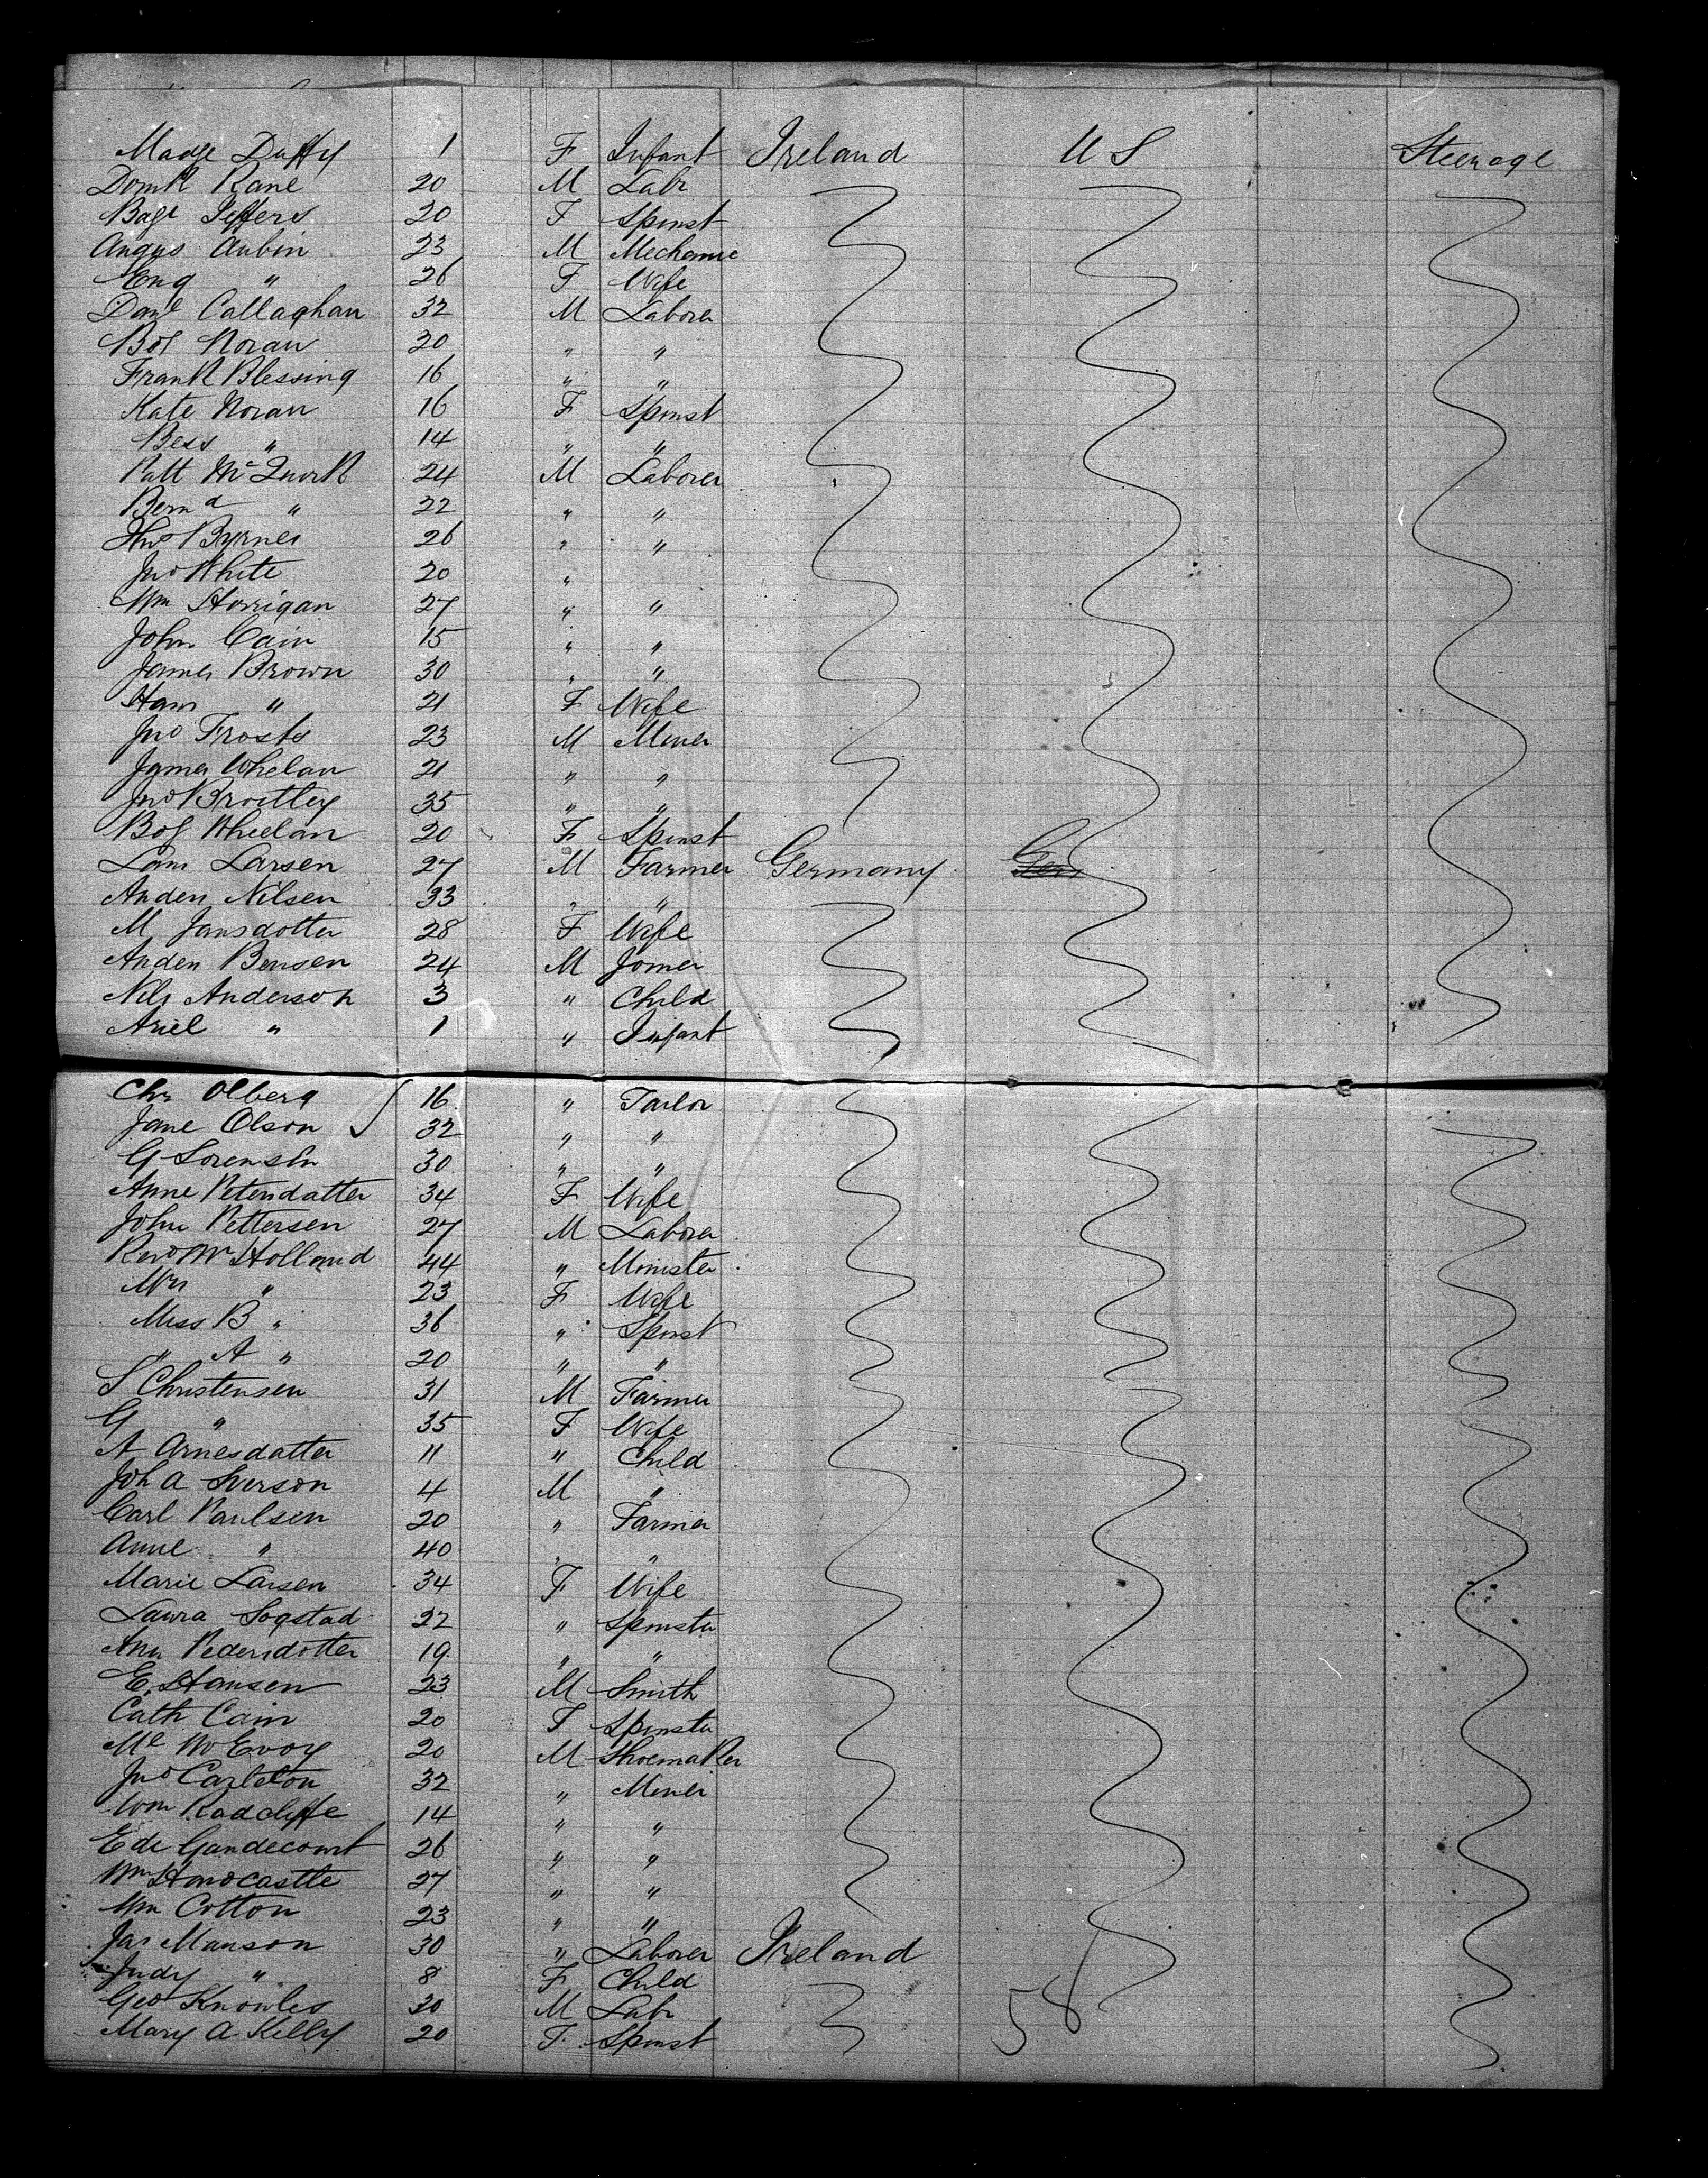 Madge Duffy 1 F Infant Ireland U S Steerage
Domk Kane 20 M Labr
Bagt Jeffers 20 F Spinst
Angus Aubin 23 M Mechanic
Eng " 26 F Wife
Danl Callaghan 32 M Laborer
Bos Noran 20 " "
Frank Blessing 16 " "
Kate Noran 16 F Spinst
Bess " 14 " "
Patt McQuirk 24 M Laborer
Bernd " 22 " "
Thos Byrnes 26 " "
Jno White 20 "
Wm Horrigan 27 " "
John Cain 15 " "
James Brown 30 " "
Han " 21 F Wife
Jno Frosts 23 M Miner
James Whelan 21 " "
Jno Brottley 35 " "
Bos Wheelan 20 F Spinst
Lars Larsen 27 M Farmer Germany Ger
Anders Nilsen 33 " "
M Jansdotter 28 F Wife
Anders Bensen 24 M Joiner
Nils Anderson 3 " Child
Ariel " 1 " Infant
Chr Olberg 16 " Tailor
Jane Olson 32 " "
G Sorensen 30 " "
Anne Petersdatter 34 F Wife
John Pettersen 27 M Laborer
Revd Mr Holland 44 " Minister
Mrs " 23 F Wife
Miss B " 36 " Spinst
" A " 20 " "
S Christensen 31 M Farmer
G " 35 F Wife
A Arnesdatter 11 " Child
Joh A Iverson 4 M "
Carl Paulsen 20 " Farmer
Anne " 40 " "
Marie Larsen 34 F Wife
Laura Sogstad 22 " Spinster
Ann Pedersdotter 19 " "
E. Hansen 23 M Smith
Cath Cain 20 F Spinster
Ml McEvoy 20 M Shoemaker
Jno Carleton 32 " Miner
Wm Radcliffe 14 " "
E de Gandecourt 26 " "
Wm Hardcastle 27 " "
Wm Cotton 23 " "
Jas Manson 30 " Laborer Ireland
Judy " 8 F Child
Geo Knowles 30 M Labr 58
Mary A Kelly 20 F Spinst